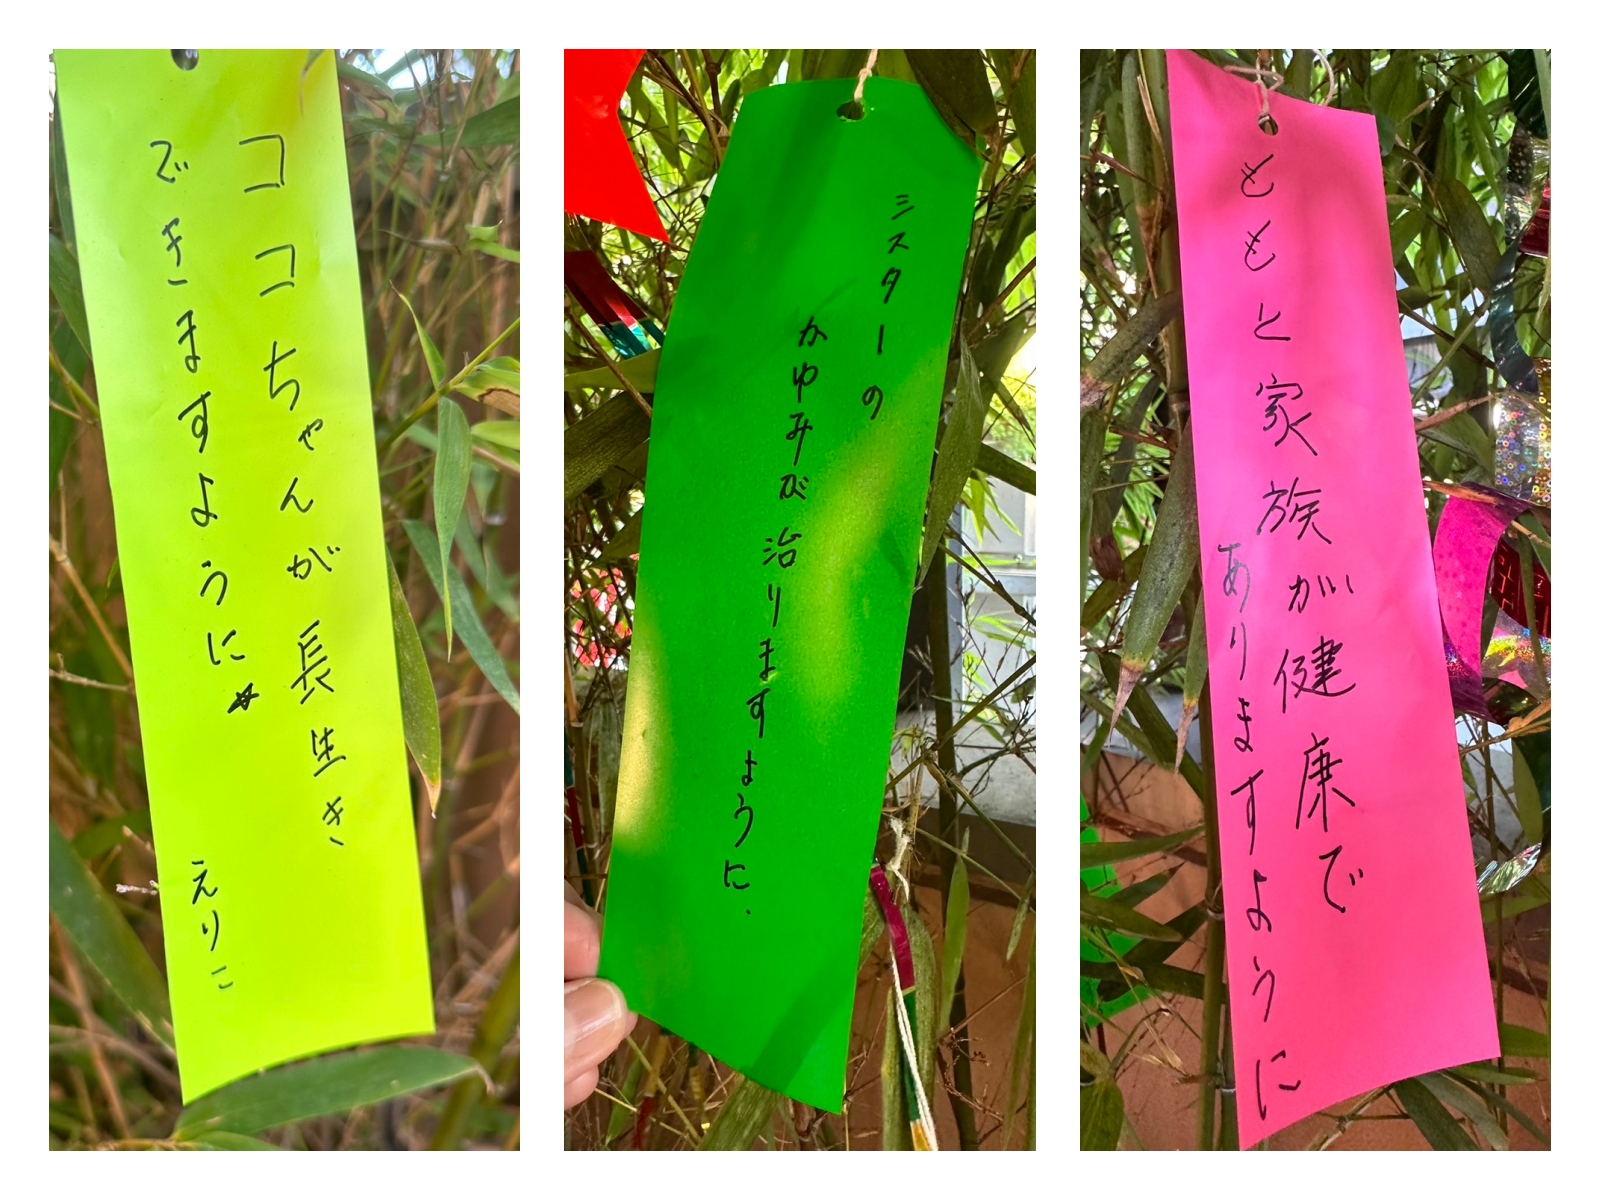 ココちゃんが長生き
できますように☆
えりこ
ミスターの
かゆみが治りますように.
ももと家族が健康で
ありますように